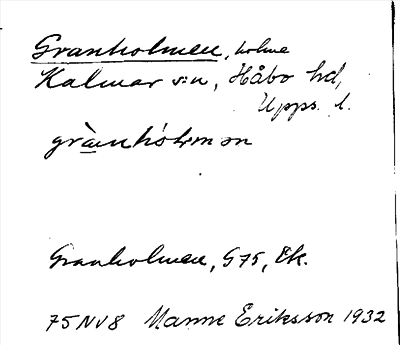 Granholmen, holme
Kalmar s:n, Håbo hd,
Upps. l.
grànhólmən
Granholmen, G75, Ek.
75NV8 Manne Eriksson 1932